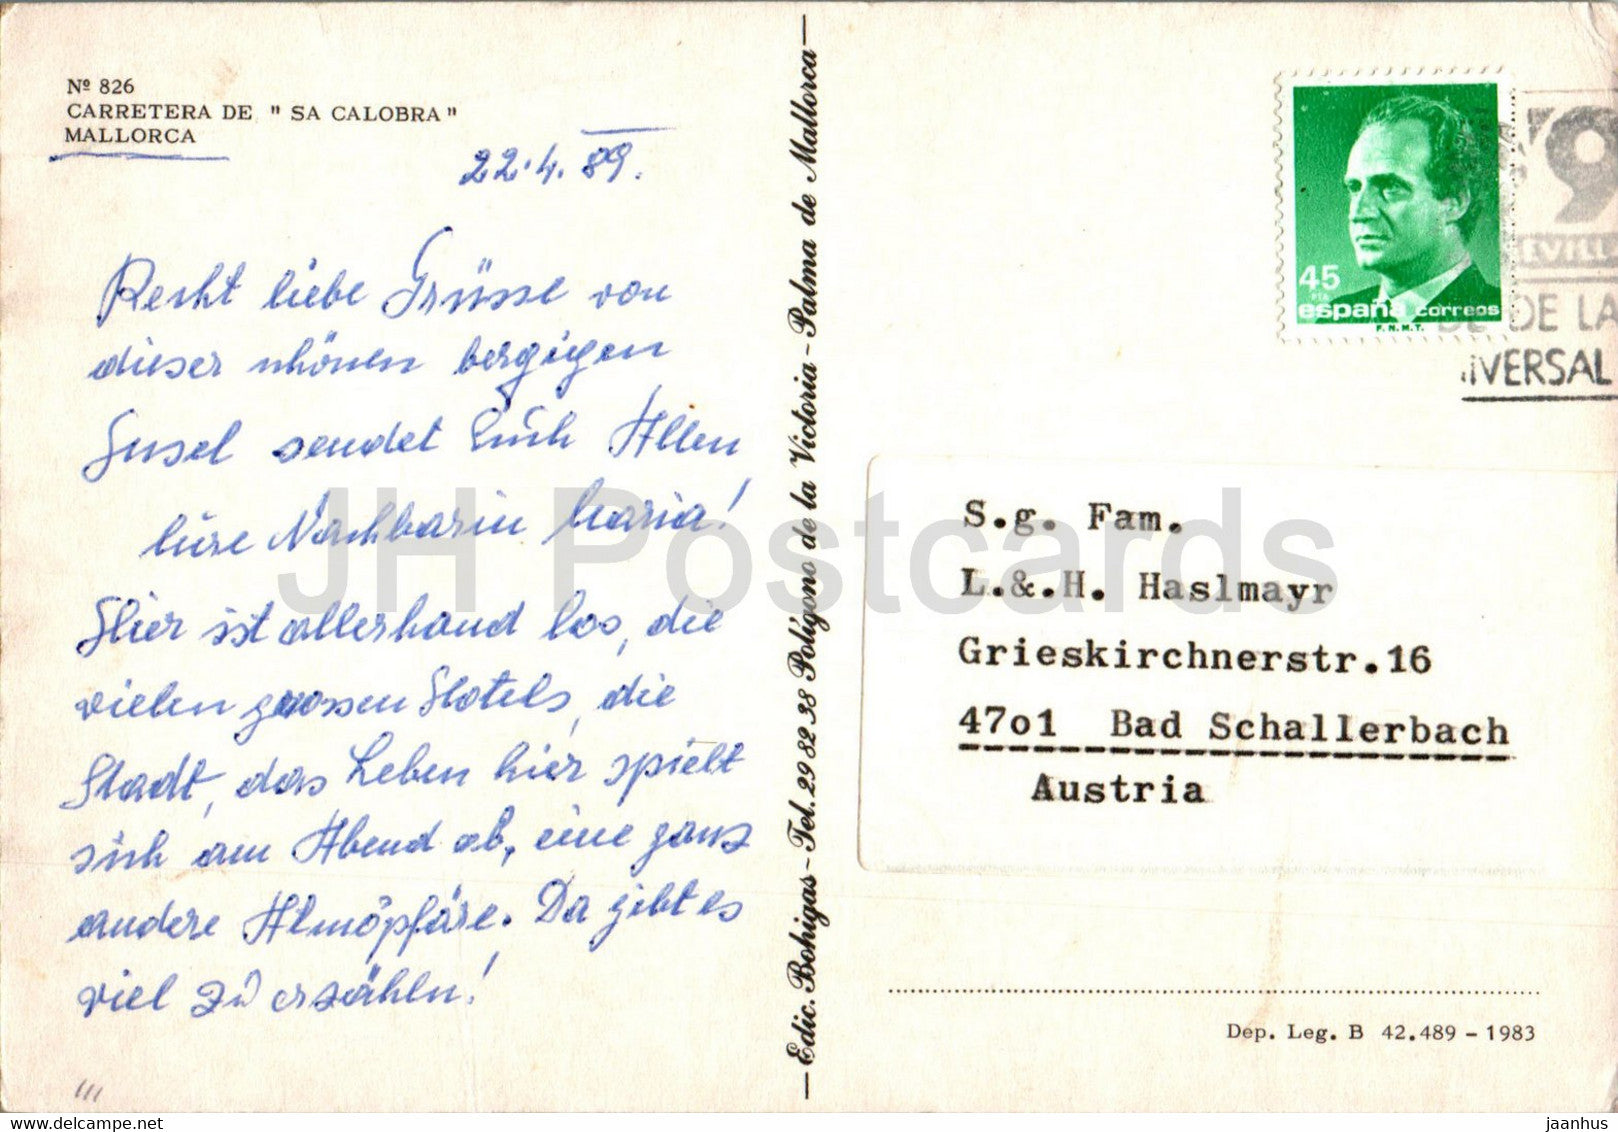 Nº 826
CARRETERA DE " SA CALOBRA "
MALLORCA
22.4.89.
Recht liebe Grüsse von
dieser schönen bergigen
Insel sendet Euch Allen
Eure Nachbarin Maria!
Hier ist allerhand los, die
vielen grossen Hotels, die
Stadt, das Leben hier spielt
sich am Abend ab, eine ganz
andere Atmöpfäre. Da gibt es
viel zu erzählen!
Edic. Bohigas - Tel. 29 82 38 Polígono de la Victoria - Palma de Mallorca
45
PTA
españa correos
F.N.M.T.
'9
DE DE LA
IVERSAL
S.g. Fam.
L.&.H. Haslmayr
Grieskirchnerstr.16
47o1 Bad Schallerbach
Austria
Dep. Leg. B 42.489 - 1983
JH Postcards
www.delcampe.net
jaanhus